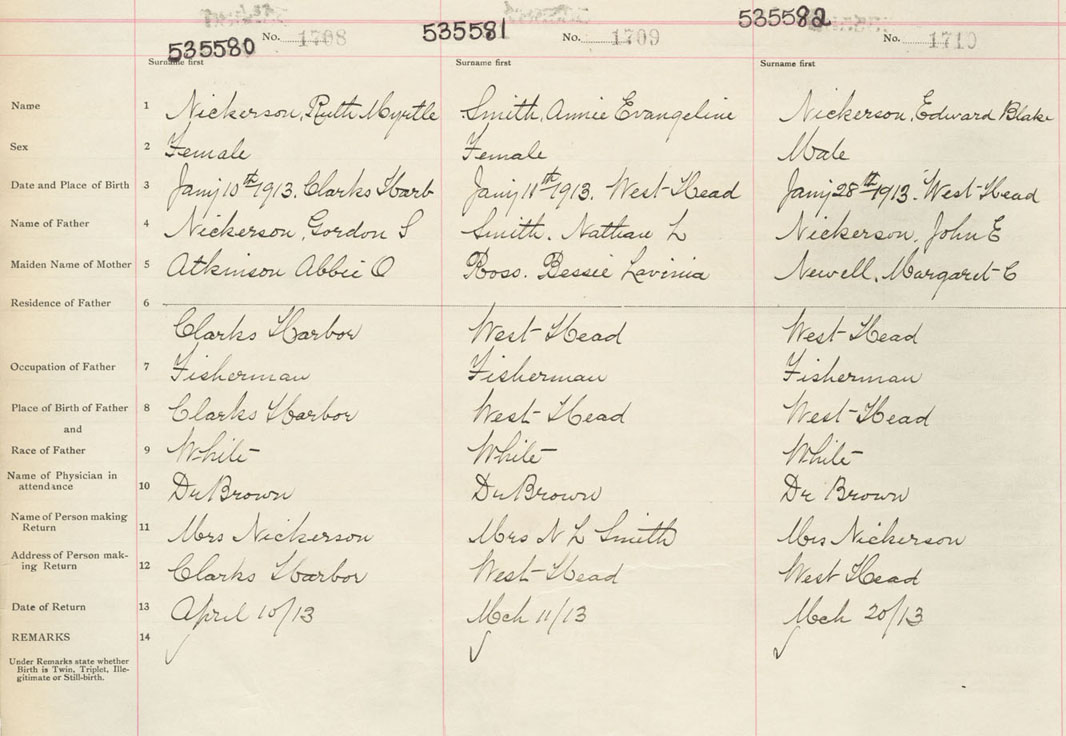 535580 No. 1708 535581 No. 1709 535582 No. 1710
Surname first Surname first Surname first
Name 1 Nickerson, Ruth Myrtle Smith, Annie Evangeline Nickerson, Edward Blake
Sex 2 Female Female Male
Date and Place of Birth 3 Jany 10th 1913. Clarks Harb Jany 11th 1913. West Head Jany 28th 1913. West Head
Name of Father 4 Nickerson, Gordon S Smith. Nathan L Nickerson, John E
Maiden Name of Mother 5 Atkinson Abbie O Ross. Bessie Lavinia Newell, Margaret C
Residence of Father 6
Clarks Harbor West Head West Head
Occupation of Father 7 Fisherman Fisherman Fisherman
Place of Birth of Father 8 Clarks Harbor West Head West Head
and
Race of Father 9 White White White
Name of Physician in
attendance 10 Dr Brown Dr Brown Dr Brown
Name of Person making
Return 11 Mrs Nickerson Mrs N L Smith Mrs Nickerson
Address of Person mak-
ing Return 12 Clarks Harbor West Head West Head
Date of Return 13 April 10/13 Mch 11/13 Mch 20/13
REMARKS 14
Under Remarks state whether
Birth is Twin, Triplet, Ille-
gitimate or Still-birth.